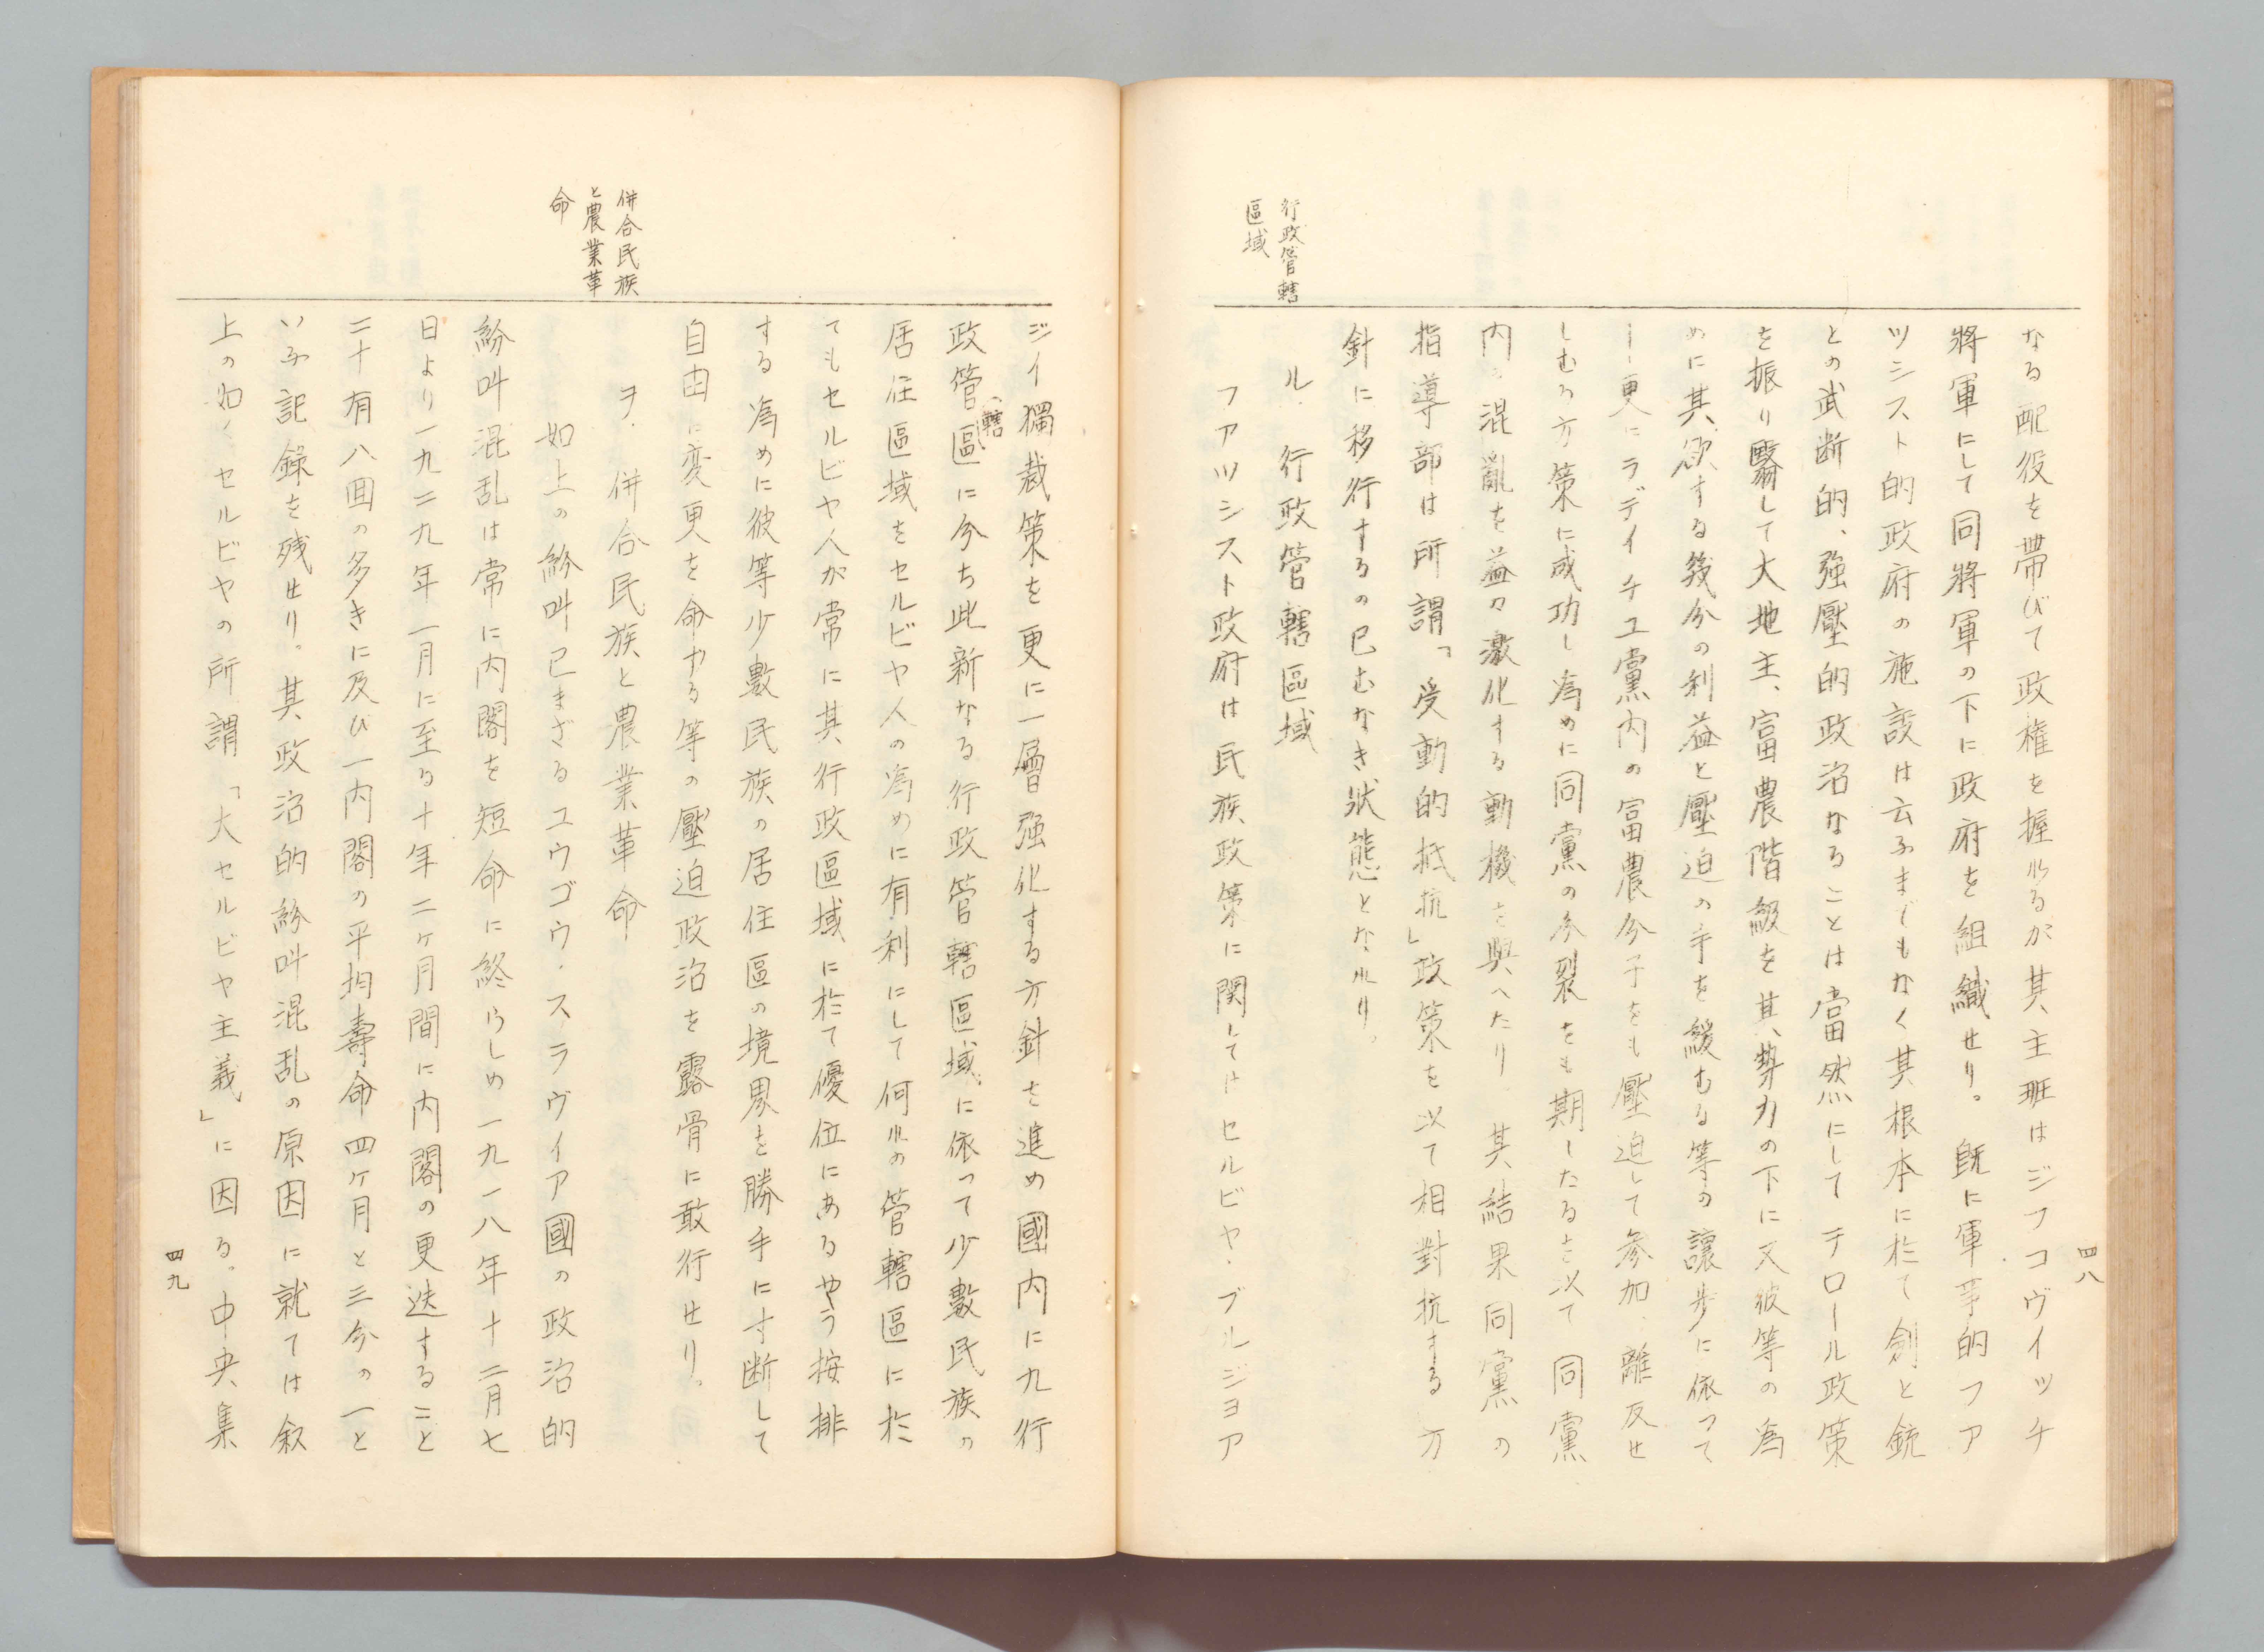 四八
なる配役を帯びて政権を握れるが其主班はジフコヴイツチ
將軍にして同將軍の下に政府を組織せり。既に軍事的フア
ツシスト的政府の施設は云ふまでもなく其根本に於て劍と銃
との武断的、強壓的政治なることは當然にしてテロール政策
を振り翳して大地主、富農階級を其勢力の下に又彼等の為
めに其欲する幾分の利益と壓迫の手を緩むる等の讓歩に依つて
ー更にラデイチユ黨内の富農分子をも壓迫して参加、離反せ
しむる方策に成功し為めに同黨の分裂をも期したるを以て同黨
内の混亂を益々激化する動機を與へたり。其結果同黨の
指導部は所謂「受動的抵抗」政策を以て相對抗する方
針に移行するの已むなき狀態となれり。
行政管轄
區域
ル．行政管轄區域
フアツシスト政府は民族政策に関してはセルビヤ・ブルジヨア
ジイ獨裁策を更に一層强化する方針を進め國内に九行
政管轄區に分ち此新なる行政管轄區域に依つて少數民族の
居住區域をセルビヤ人の為めに有利にして何れの管轄區に於
てもセルビヤ人が常に其行政區域に於て優位にあるやう按排
する為めに彼等少數民族の居住區の境界を勝手に寸断して
自由に変更を命ずる等の壓迫政治を露骨に敢行せり。
併合民族
と農業革
命
ヲ．併合民族と農業革命
如上の紛叫已まざるユウゴウ・スラヴイア國の政治的
紛叫混乱は常に内閣を短命に終らしめ一九一八年十二月七
日より一九二九年一月に至る十年二ヶ月間に内閣の更迭すること
二十有八回の多きに及び一内閣の平均壽命四ヶ月と三分の一と
いふ記録を残せり。其政治的紛叫混乱の原因に就ては叙
上の如くセルビヤの所謂「大セルビヤ主義」に因る。中央集
四九